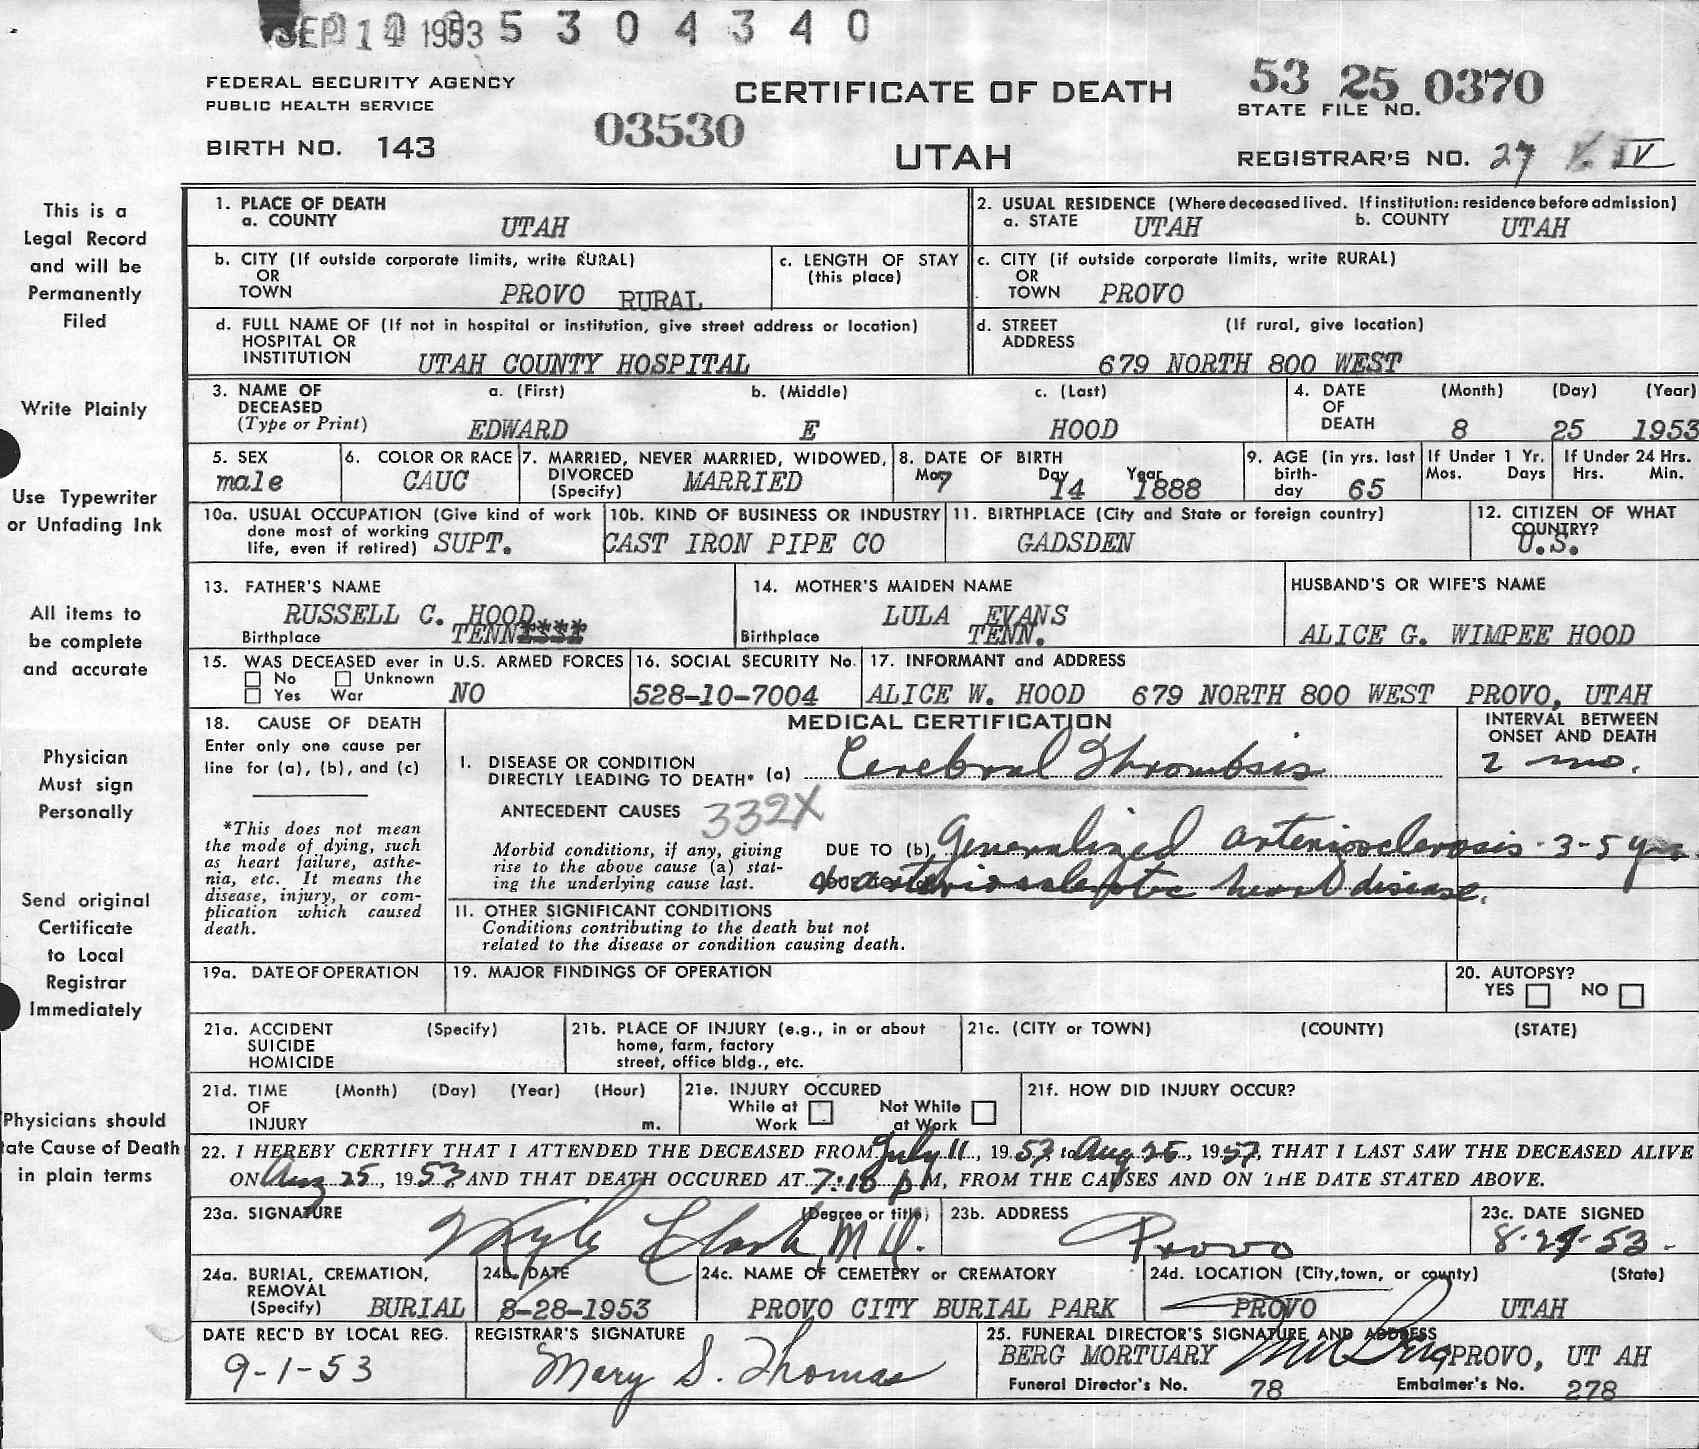 SEP 14 1953 5 3 0 4 3 4 0
FEDERAL SECURITY AGENCY
PUBLIC HEALTH SERVICE
BIRTH NO. 143
03530
CERTIFICATE OF DEATH
UTAH
53 25 0370
STATE FILE NO.
REGISTRAR'S NO. 27 IV
This is a
Legal Record
and will be
Permanently
Filed
Write Plainly
Use Typewriter
or Unfading Ink
All items to
be complete
and accurate
Physician
Must sign
Personally
Send original
Certificate
to Local
Registrar
Immediately
Physicians should
ate Cause of Death
in plain terms
1. PLACE OF DEATH
a. COUNTY UTAH
2. USUAL RESIDENCE (Where deceased lived. If institution: residence before admission)
a. STATE UTAH b. COUNTY UTAH
b. CITY (If outside corporate limits, write RURAL)
OR
TOWN PROVO RURAL
c. LENGTH OF STAY
(this place)
c. CITY (if outside corporate limits, write RURAL)
OR
TOWN PROVO
d. FULL NAME OF (If not in hospital or institution, give street address or location)
HOSPITAL OR
INSTITUTION UTAH COUNTY HOSPITAL
d. STREET (If rural, give location)
ADDRESS
679 NORTH 800 WEST
3. NAME OF a. (First) b. (Middle) c. (Last)
DECEASED
(Type or Print) EDWARD E HOOD
4. DATE (Month) (Day) (Year)
OF
DEATH 8 25 1953
5. SEX
male
6. COLOR OR RACE
CAUC
7. MARRIED, NEVER MARRIED, WIDOWED,
DIVORCED
(Specify) MARRIED
8. DATE OF BIRTH
Mo. 7 Day 14 Year 1888
9. AGE (in yrs. last
birth-
day 65
If Under 1 Yr.
Mos. Days
If Under 24 Hrs.
Hrs. Min.
10a. USUAL OCCUPATION (Give kind of work
done most of working
life, even if retired) SUPT.
10b. KIND OF BUSINESS OR INDUSTRY
CAST IRON PIPE CO
11. BIRTHPLACE (City and State or foreign country)
GADSDEN
12. CITIZEN OF WHAT
COUNTRY?
U.S.
13. FATHER'S NAME
RUSSELL C. HOOD
Birthplace TENN****
14. MOTHER'S MAIDEN NAME
LULA EVANS
Birthplace TENN.
HUSBAND'S OR WIFE'S NAME
ALICE G. WIMPEE HOOD
15. WAS DECEASED ever in U.S. ARMED FORCES
No Unknown
Yes War NO
16. SOCIAL SECURITY No.
528-10-7004
17. INFORMANT and ADDRESS
ALICE W. HOOD 679 NORTH 800 WEST PROVO, UTAH
18. CAUSE OF DEATH
Enter only one cause per
line for (a), (b), and (c)
*This does not mean
the mode of dying, such
as heart failure, asthe-
nia, etc. It means the
disease, injury, or com-
plication which caused
death.
MEDICAL CERTIFICATION
INTERVAL BETWEEN
ONSET AND DEATH
I. DISEASE OR CONDITION
DIRECTLY LEADING TO DEATH* (a) Cerebral Thrombosis 2 mo.
ANTECEDENT CAUSES 332X
Morbid conditions, if any, giving
rise to the above cause (a) stat-
ing the underlying cause last.
DUE TO (b) Generalized arteriosclerosis - 3-5 yrs
& arteriosclerotic heart disease.
11. OTHER SIGNIFICANT CONDITIONS
Conditions contributing to the death but not
related to the disease or condition causing death.
19a. DATE OF OPERATION
19. MAJOR FINDINGS OF OPERATION
20. AUTOPSY?
YES NO
21a. ACCIDENT (Specify)
SUICIDE
HOMICIDE
21b. PLACE OF INJURY (e.g., in or about
home, farm, factory
street, office bldg., etc.
21c. (CITY or TOWN) (COUNTY) (STATE)
21d. TIME (Month) (Day) (Year) (Hour)
OF
INJURY m.
21e. INJURY OCCURED
While at Not While
Work at Work
21f. HOW DID INJURY OCCUR?
22. I HEREBY CERTIFY THAT I ATTENDED THE DECEASED FROM July 11, 1953 to Aug 25, 1953, THAT I LAST SAW THE DECEASED ALIVE
ON Aug 25, 1953, AND THAT DEATH OCCURED AT 7:18 pM, FROM THE CAUSES AND ON THE DATE STATED ABOVE.
23a. SIGNATURE (Degree or title)
Kyle Clark M D.
23b. ADDRESS
Provo
23c. DATE SIGNED
8-27-53
24a. BURIAL, CREMATION,
REMOVAL
(Specify) BURIAL
24b. DATE
8-28-1953
24c. NAME OF CEMETERY or CREMATORY
PROVO CITY BURIAL PARK
24d. LOCATION (City, town, or county) (State)
PROVO UTAH
DATE REC'D BY LOCAL REG.
9-1-53
REGISTRAR'S SIGNATURE
Mary S. Thomas
25. FUNERAL DIRECTOR'S SIGNATURE AND ADDRESS
BERG MORTUARY PROVO, UT AH
Funeral Director's No. 78 Embalmer's No. 278